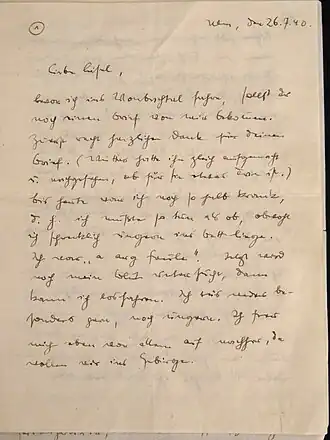 ①
Ulm, den 26.7.40.
Liebe Lisel,
bevor ich ins fahre, sollst Du
noch einen Brief von mir bekommen.
Zuerst recht herzlichen Dank für Deinen
Brief. (Mutter hatte ihn gleich aufgemacht
u. nachgesehen, ob für sie etwas drin ist.)
Bis heute war ich noch so halb krank,
d. h. ich mußte so tun als ob, obwohl
ich schrecklich ungern im Bett liege.
Ich war „a arg". Jetzt wird
noch mein Blut untersucht, dann
kann ich losfahren. Ich weder be-
sonders gern, noch ungern. Ich freu
mich eben vor allem auf nachher, da
wollen wir ins Gebirge.